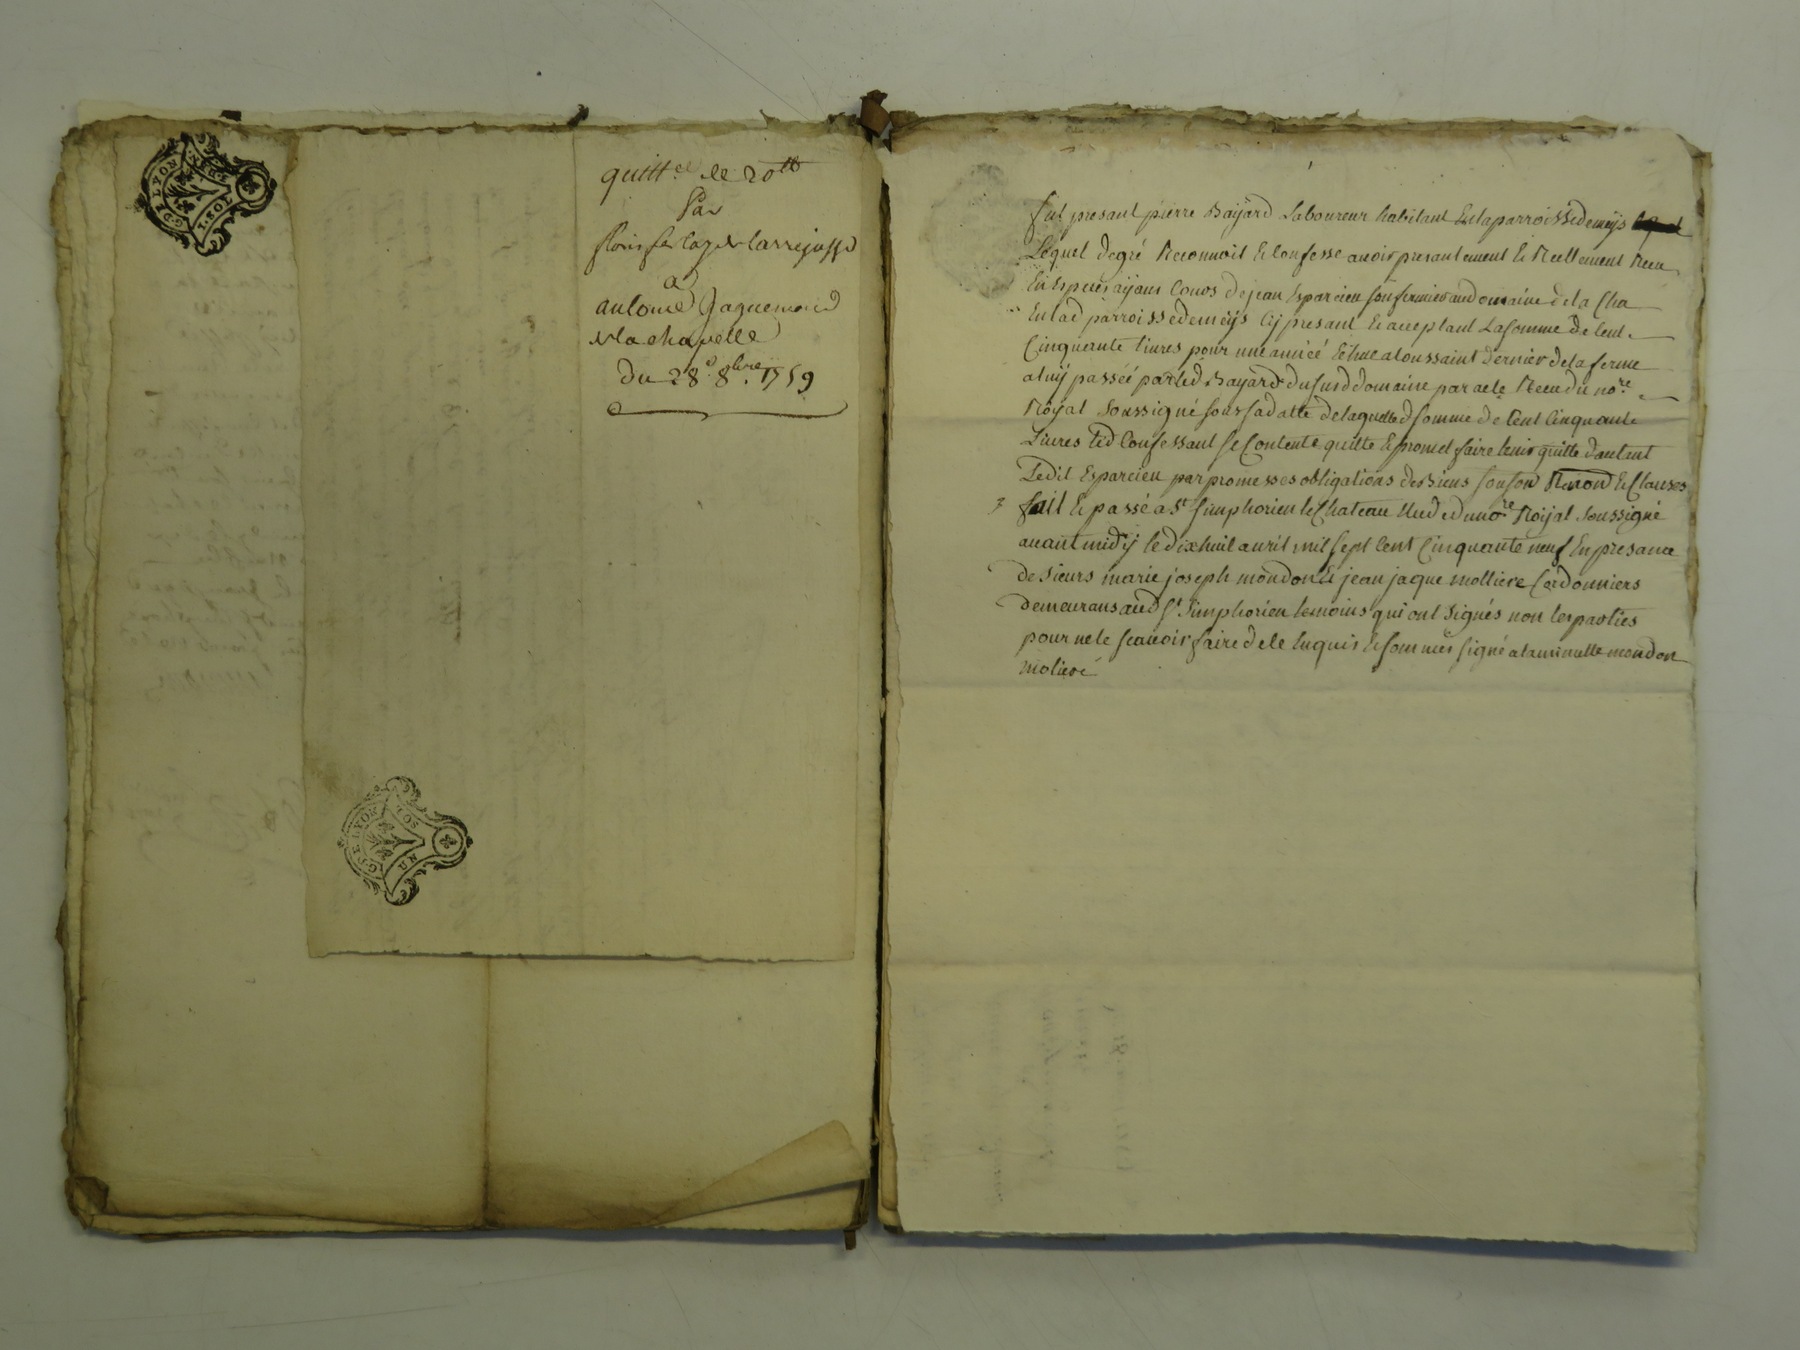 GE. LYON
1. SOL
quitt.ce de 20tt
Par
a
antoine Jaquemond
de la chapelle
du 28.e 8bre 1759
GE. LYON
UN SOL
fut presant pierre Bayard Laboureur habitant En la parroisse de meijs
Lequel de gré Reconnoit & Confesse avoir presantement & Reellement Receu
En Especes aÿans Cours de jean Esparcieu son fermier au domaine de la Cha
En lad parroisse de meijs Cÿ presant & acceptant La somme de Cent
Cinquante Livres pour une année Echue a toussaint dernier de la ferme
a luÿ passéé par led Bayard du susd domaine par acte Receu du no.re
Roÿal Soussigné sous sa datte de laquelle d somme de Cent Cinquante
Livres led Confessant se Contente quitte & promet faire tenir quitte d'autant
Ledit Esparcieu par promesses obligations de Biens sous son Renon & Clauses
fait & passé a St simphorien le Chateau Etude du no.re Roÿal Soussigné
avant midÿ le dixhuit avril mil sept cent Cinquante neuf En presance
de Sieurs marie joseph mondon & jean jaque molliere Cordonniers
demeurans aud St Simphorien temoins qui ont signés non les parties
pour ne le scavoir faire de ce Enquis & sommés signé a la minutte mondon
moliere